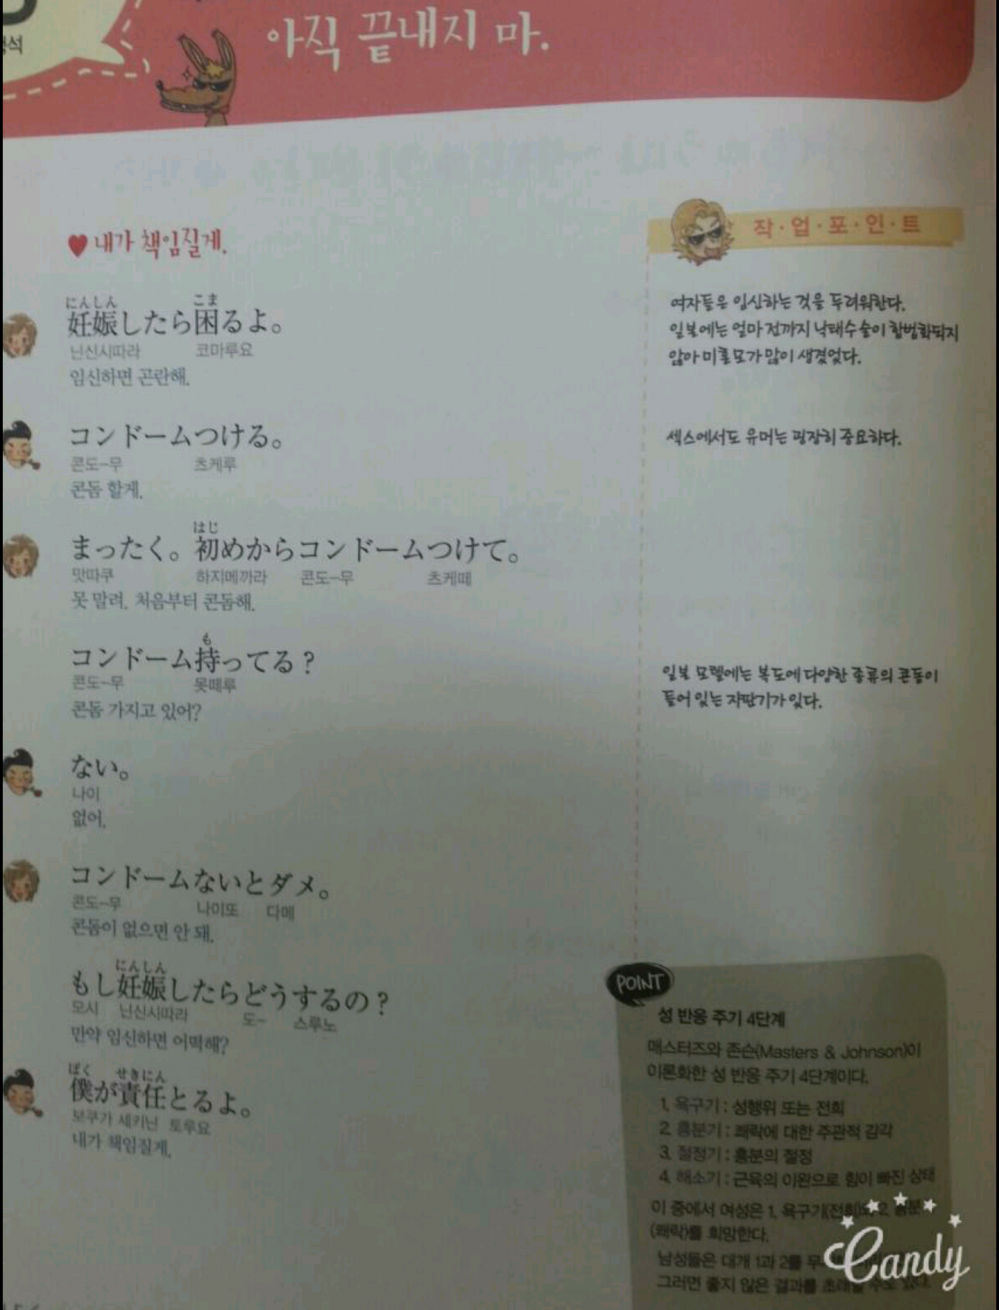 석
아직 끝내지 마.
♥ 내가 책임질게.
にんしん こま
妊娠したら困るよ。
닌신시따라 코마루요
임신하면 곤란해.
コンドームつける。
콘도-무 츠케루
콘돔 할게.
はじ
まったく。初めからコンドームつけて。
맛따쿠 하지메까라 콘도-무 츠케떼
못 말려. 처음부터 콘돔해.
も
コンドーム持ってる?
콘도-무 못떼루
콘돔 가지고 있어?
ない。
나이
없어.
コンドームないとダメ。
콘도-무 나이또 다메
콘돔이 없으면 안 돼.
にんしん
もし妊娠したらどうするの?
모시 닌신시따라 도- 스루노
만약 임신하면 어떡해?
ぼく せきにん
僕が責任とるよ。
보쿠가 세키닌 토루요
내가 책임질게.
작·업·포·인·트
여자들은 임신하는 것을 두려워한다.
일본에는 얼마 전까지 낙태수술이 합법화되지
않아 미혼모가 많이 생겼었다.
섹스에서도 유머는 굉장히 중요하다.
일본 모텔에는 복도에 다양한 종류의 콘돔이
들어 있는 자판기가 있다.
POINT
성 반응 주기 4단계
매스터즈와 존슨(Masters & Johnson)이
이론화한 성 반응 주기 4단계이다.
1. 욕구기 : 성행위 또는 전희
2. 흥분기 : 쾌락에 대한 주관적 감각
3. 절정기 : 흥분의 절정
4. 해소기 : 근육의 이완으로 힘이 빠진 상태
이 중에서 여성은 1. 욕구기(전희)와 2. 흥분
(쾌락)를 희망한다.
남성들은 대개 1과 2를
그러면 좋지 않은 결과를 초래할 수도 있다.
Candy